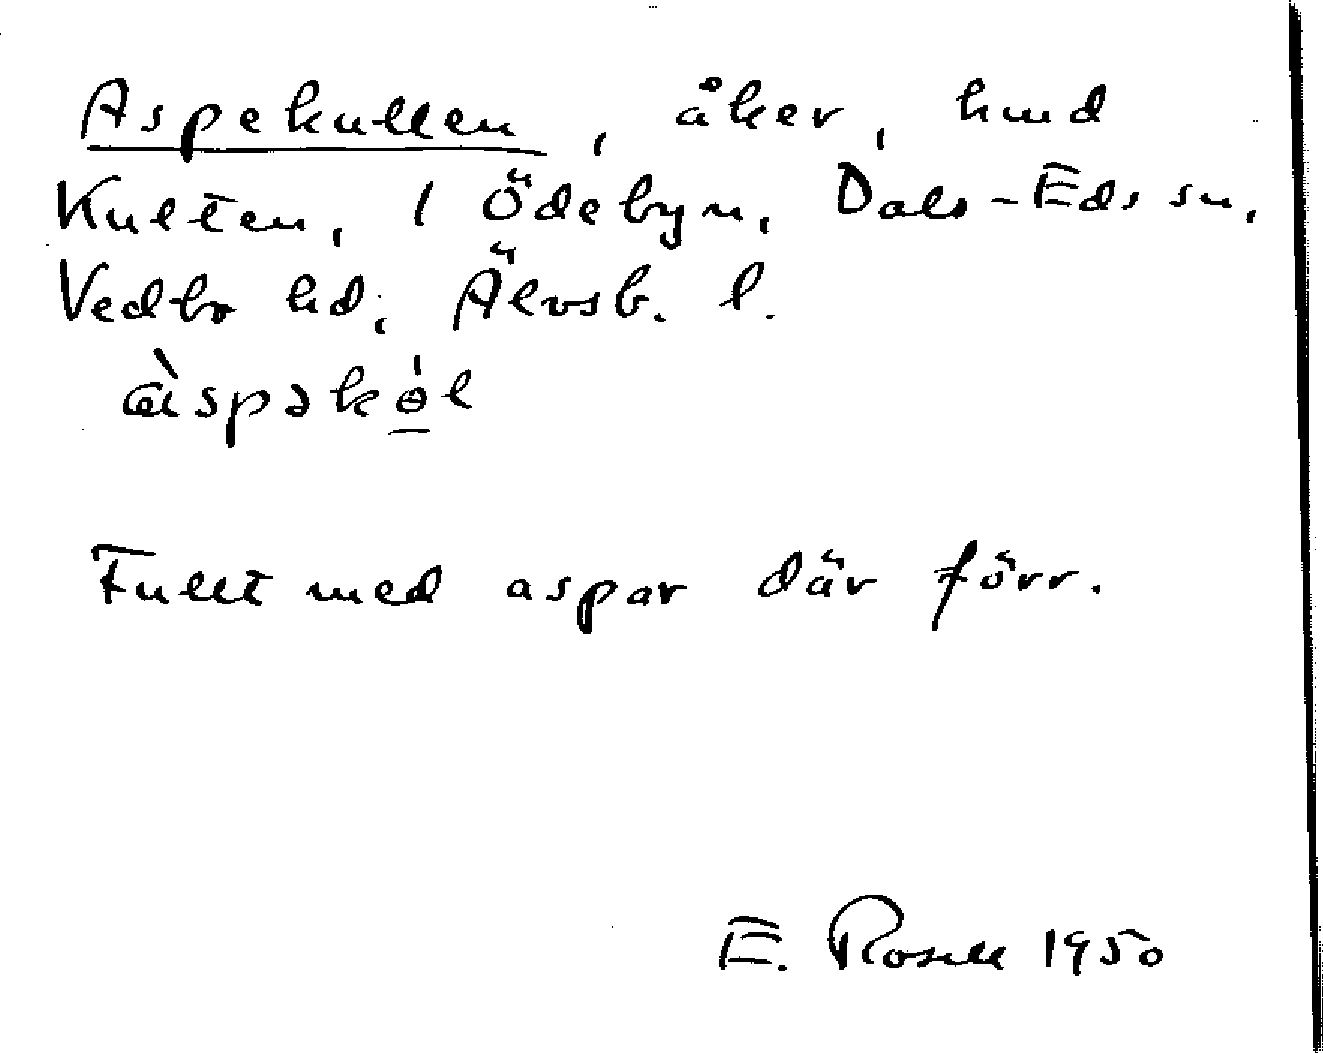 Aspekullen, åker, hmd
Kulten, 1 Ödebyn, Dals-Eds sn,
Vedbo hd, Älvsb. l.
Fullt med aspar där förr.
E. Rosell 1950